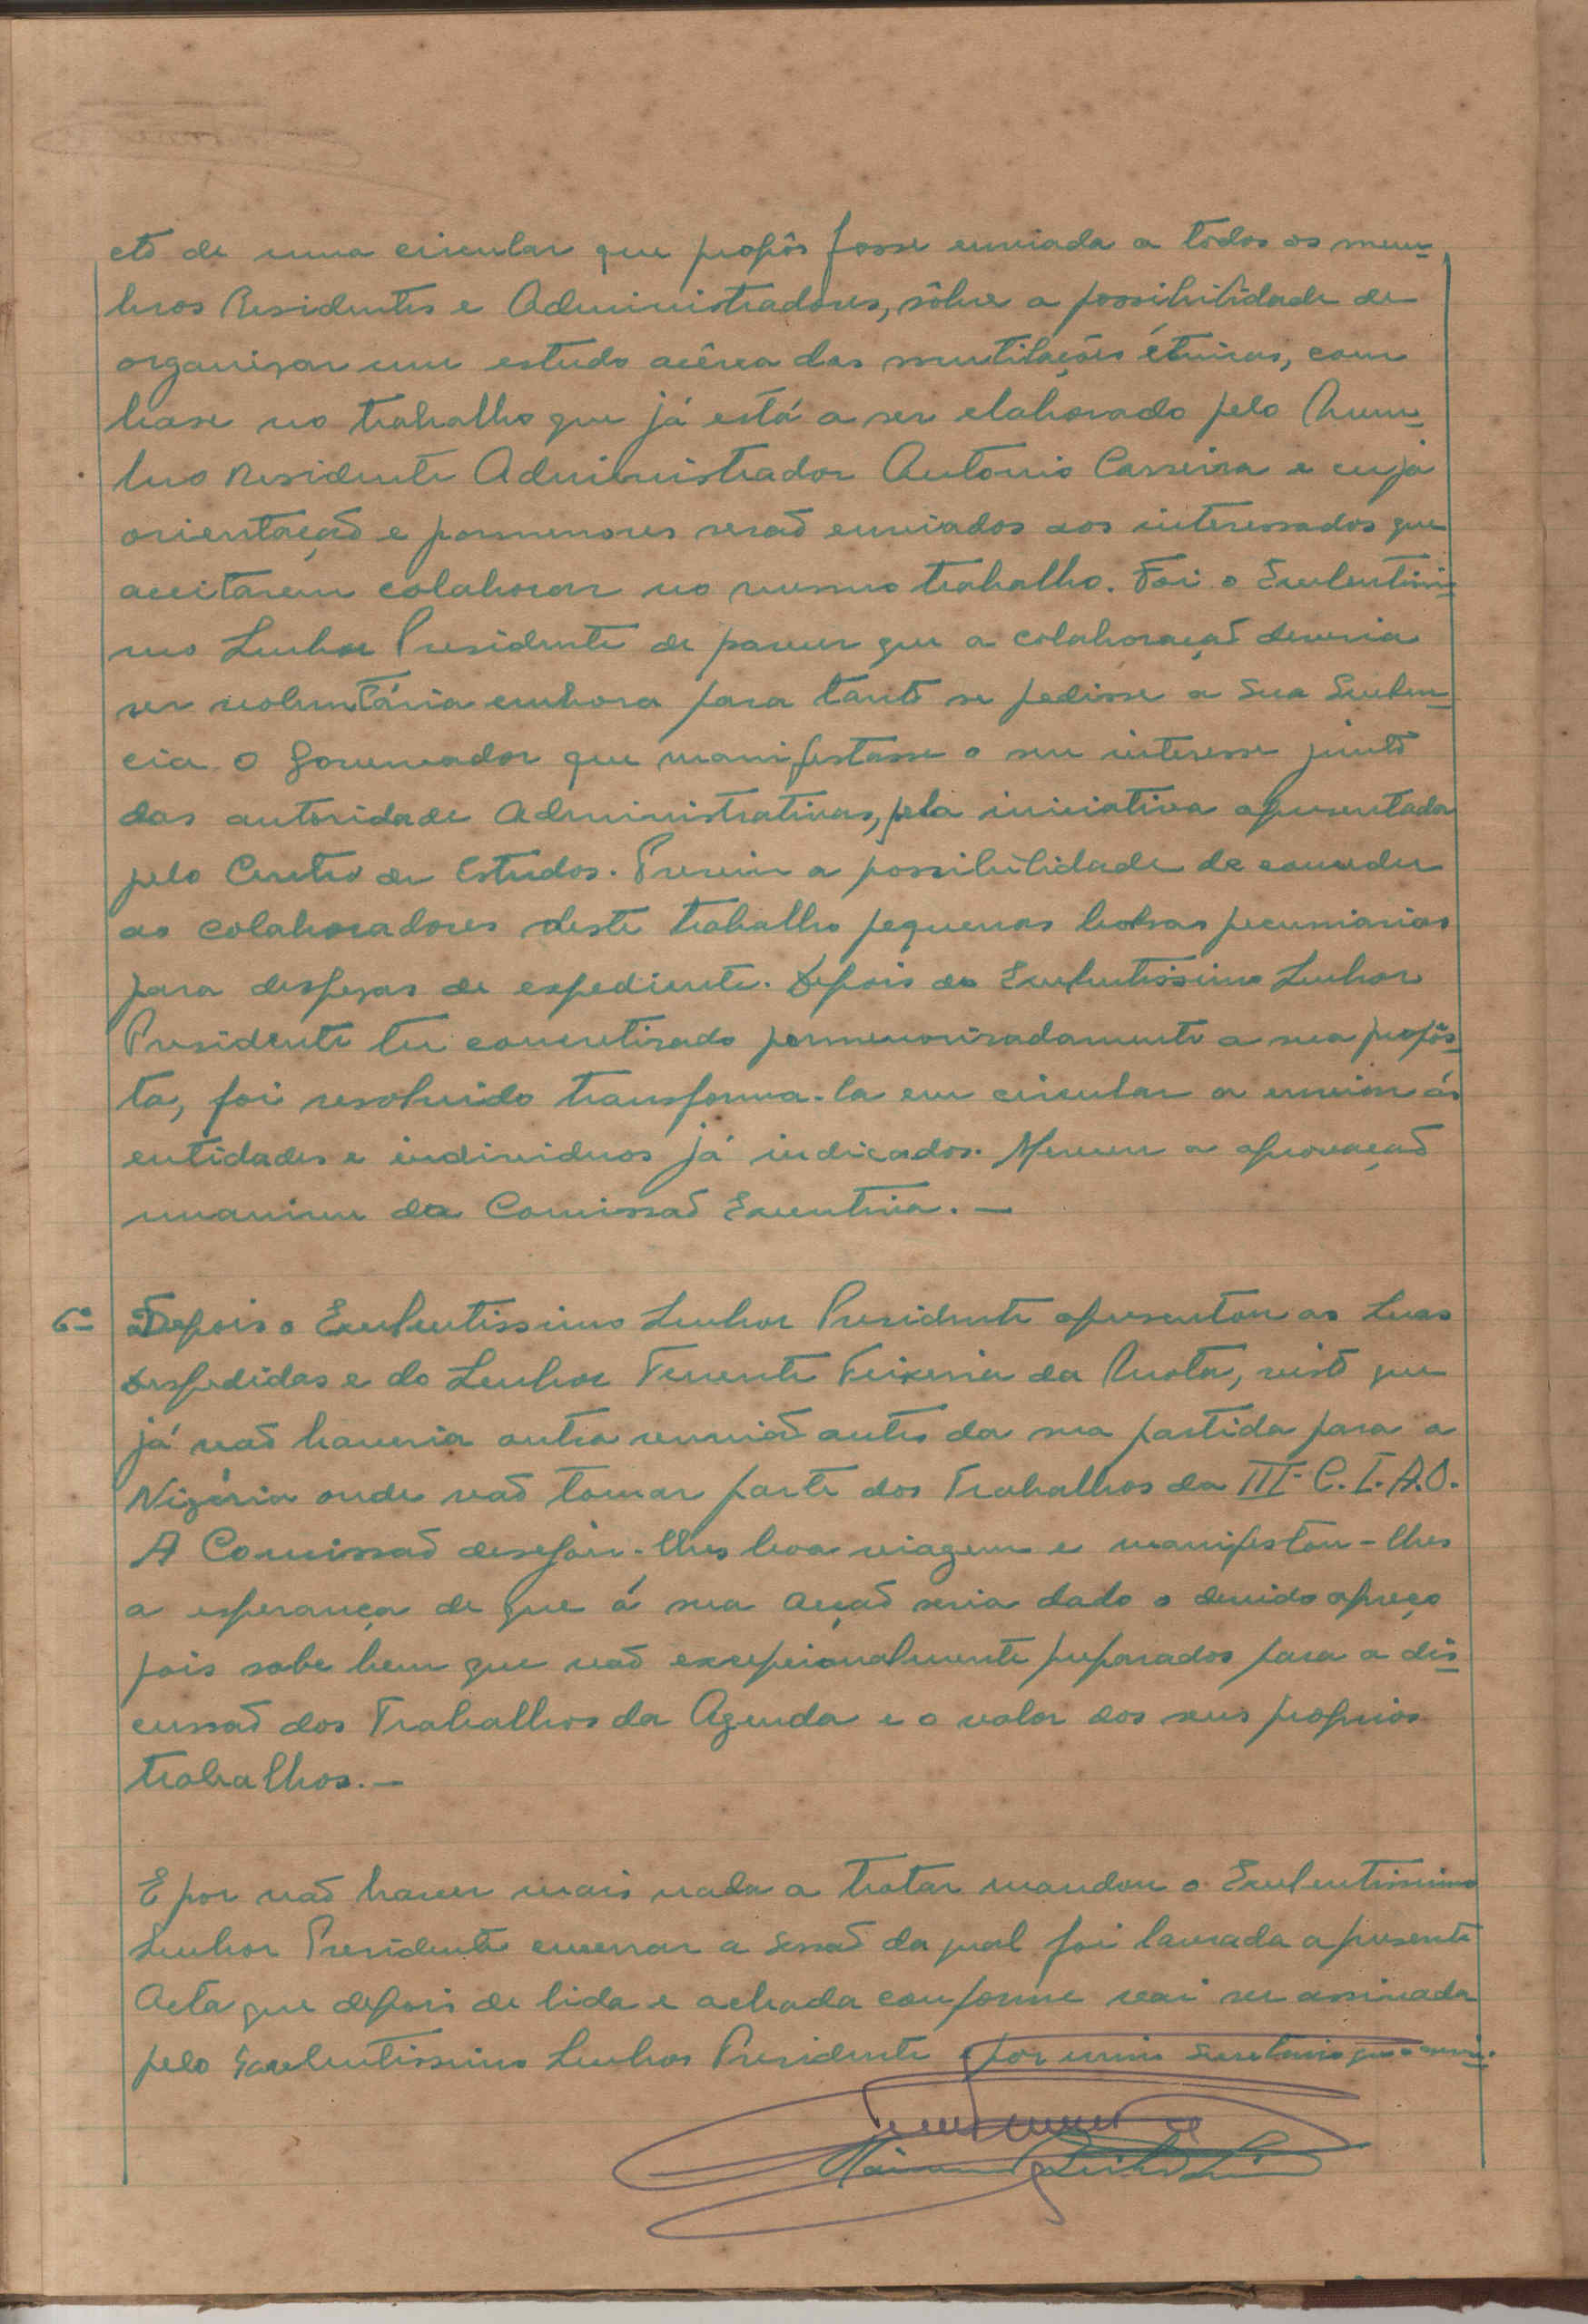 cto de uma circular que propôs fosse enviada a todos os mem-
bros Residentes e Administradores, sôbre a possibilidade de
organizar um estudo acêrca das mutilações étnicas, com
base no trabalho que já está a ser elaborado pelo Mem-
bro Residente Administrador Antonio Carreira e cuja
orientação e pormenores serão enviados aos interessados que
aceitarem colaborar no mesmo trabalho. Foi o Excelentissi-
mo Senhor Presidente de parecer que a colaboração deveria
ser voluntária embora para tanto se pedisse a Sua Excelen-
cia o Governador que manifestasse o seu interesse junto
das autoridade Administrativas, pela iniciativa apresentada
pelo Centro de Estudos. Previu a possibilidade de conceder
ao colaboradores deste trabalho pequenas bolsas pecuniarias
para despezas de expediente. Depois do Excelentissimo Senhor
Presidente ter concretisado pormenorisadamente a sua propôs-
ta, foi resolvido transforma-la em circular a enviar ás
entidades e individuos já indicados. Mereceu a aprovação
unanime da Comissão Executiva. —
6º Depois o Excelentissimo Senhor Presidente apresentou as suas
despedidas e do Senhor Tenente Teixeira da Mota, visto que
já não haveria outra reunião antes da sua partida para a
Nigéria onde vão tomar parte dos Trabalhos da III C.I.A.O.
A Comissão desejou-lhes boa viagem e manifestou-lhes
a esperança de que á sua acção seria dado o devido apreço
pois sabe bem que vão excepcionalmente preparados para a dis-
cussão dos Trabalhos da Agenda e o valor dos seus proprios
trabalhos. —
E por não haver mais nada a tratar mandou o Excelentissimo
Senhor Presidente encerrar a sessão da qual foi lavrada a presente
Acta que depois de lida e achada conforme vai ser assinada
pelo Excelentissimo Senhor Presidente e por mim Secretario que